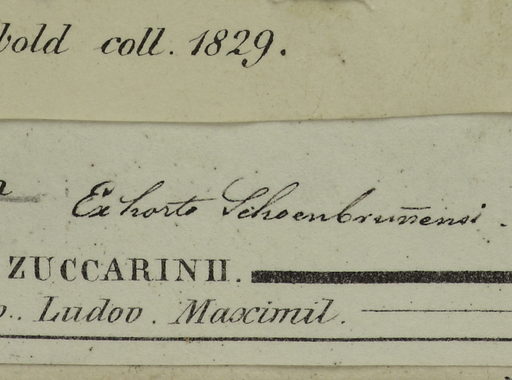 bold coll. 1829.
Ex horto Schoenbrun̅ensi.
ZUCCARINII.
Ludov. Maximil.